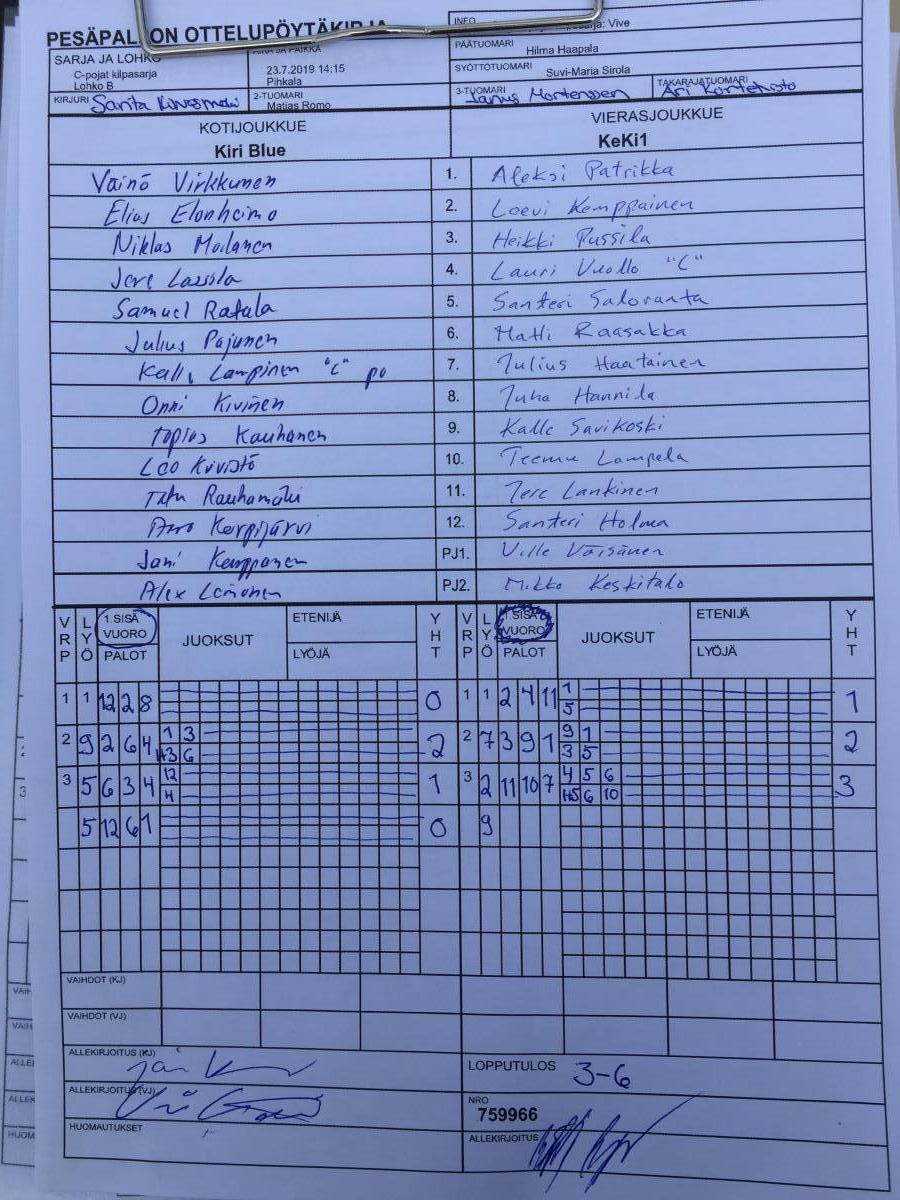 PESÄPAL ON OTTELUPÖYTÄKIRJA
SARJA JA LOHKO
C-pojat kilpasarja
Lohko B
AIKA JA PAIKKA
23.7.2019 14:15
Pihkala
INFO
sarja: Vive
PÄÄTUOMARI
Hilma Haapala
SYÖTTÖTUOMARI
Suvi-Maria Sirola
KIRJURI Santa
2-TUOMARI
Matias Romo
3-TUOMARI
Janus Mortenssen
TAKARAJATUOMARI
Ari
KOTIJOUKKUE
Kiri Blue
VIERASJOUKKUE
KeKi1
Väinö Virkkunen 1. Aleksi Patrikka
Elias Elonheimo 2. Leevi Kemppainen
Niklas Moilanen 3. Heikki Pussila
Jere Lassila 4. Lauri Vuollo "C"
Samuel Ratala 5. Santeri Saloranta
Julius Pajunen 6. Matti Raasakka
Kalle Lampinen "C" po 7. Julius Haatainen
Onni Kivinen 8. Juha Hannila
Topias Kauhanen 9. Kalle Savikoski
Leo Kivistö 10. Teemu Lampela
Rauhamäki 11. Jere Lankinen
12. Santeri Holma
Jani Kemppanen PJ1. Ville Väisänen
Alex PJ2. Mikko Keskitalo
VRP LYÖ 1.SISÄ VUORO PALOT JUOKSUT ETENIJÄ LYÖJÄ YHT VRP LYÖ 1.SISÄ VUORO PALOT JUOKSUT ETENIJÄ LYÖJÄ YHT
1 1 12 2 8 0 1 1 2 4 11 1 1
5
2 9 2 6 4 1 3 2 2 7 3 9 1 9 1 2
H3 6 3 5
3 5 6 3 4 12 1 3 2 11 10 7 4 5 6 3
4 H5 6 10
5 12 6 1 0 9
VAIHDOT (KJ)
VAIHDOT (VJ)
ALLEKIRJOITUS (KJ)
LOPPUTULOS 3-6
ALLEKIRJOITUS (VJ)
NRO
759966
HUOMAUTUKSET
ALLEKIRJOITUS